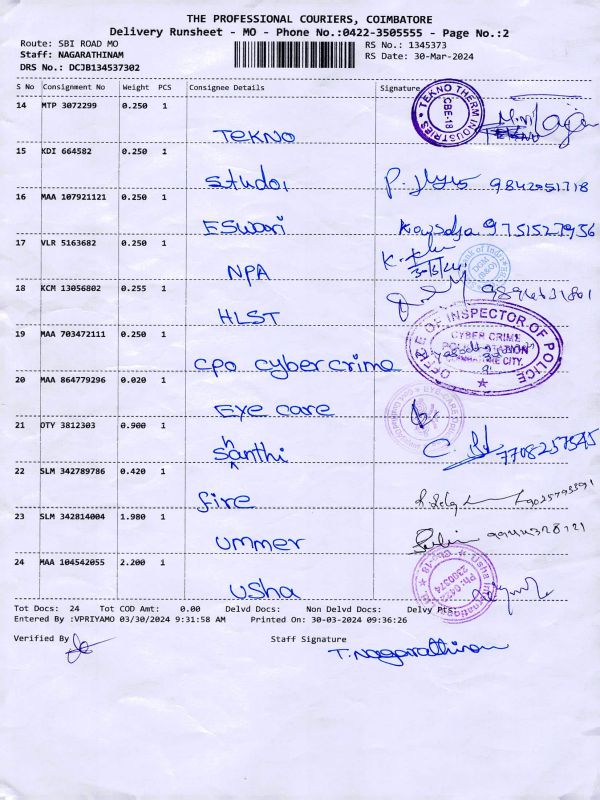 THE PROFESSIONAL COURIERS, COIMBATORE
Delivery Runsheet - MO - Phone No.:0422-3505555 - Page No.:2
Route: SBI ROAD MO
RS No.: 1345373
Staff: NAGARATHINAM
RS Date: 30-Mar-2024
DRS No.: DCJB134537302
S No Consignment No Weight PCS Consignee Details Signature
14 MTP 3072299 0.250 1
TEKNO
TEKNO THERM INDUSTRIES
CBE-18
15 KDI 664582 0.250 1
Studoi
9842051718
16 MAA 107921121 0.250 1
ESwari
9751527956
17 VLR 5163682 0.250 1
NPA
18 KCM 13056802 0.255 1
HLST
19 MAA 703472111 0.250 1
CPO cybercrime
OFFICE OF INSPECTOR OF POLICE
CYBER CRIME
20 MAA 864779296 0.020 1
Eye care
21 OTY 3812303 0.900 1
Santhi
7708257545
22 SLM 342789786 0.420 1
fire
23 SLM 342814004 1.980 1
ummer
9944328121
24 MAA 104542055 2.200 1
Usha
Tot Docs: 24 Tot COD Amt: 0.00 Delvd Docs: Non Delvd Docs: Delvy Pts:
Entered By :VPRIYAMO 03/30/2024 9:31:58 AM Printed On: 30-03-2024 09:36:26
Verified By
Staff Signature
T. Nagarathinam